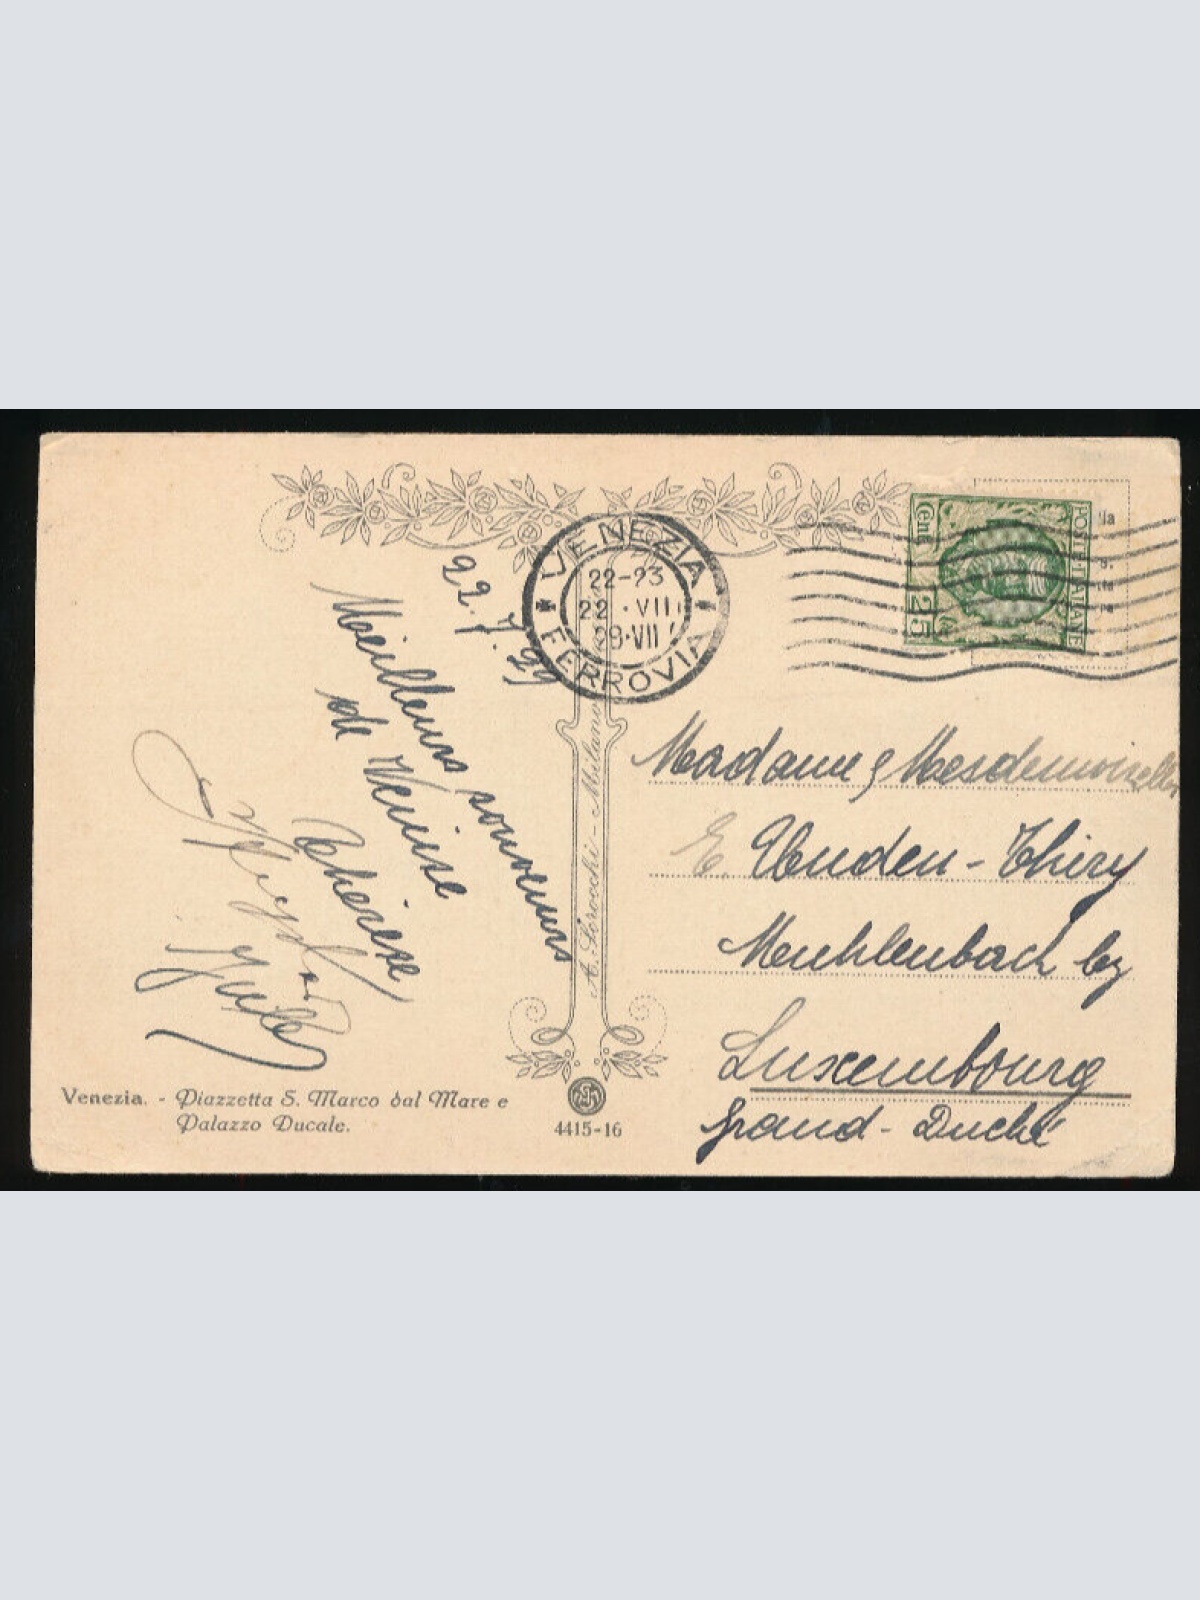 VENEZIA
22-23
22 · VII
29 · VII
FERROVIA
Cent
25
POSTE ITALIANE
22.7.29
Meilleurs souvenirs
de Venise
Thérèse
Madame & Mesdemoiselles
E. Uenden-Thiry
Meuhlenbach by
Luxembourg
Grand-Duché
A. Scrocchi - Milano
Venezia. - Piazzetta S. Marco dal Mare e
Palazzo Ducale.
4415-16